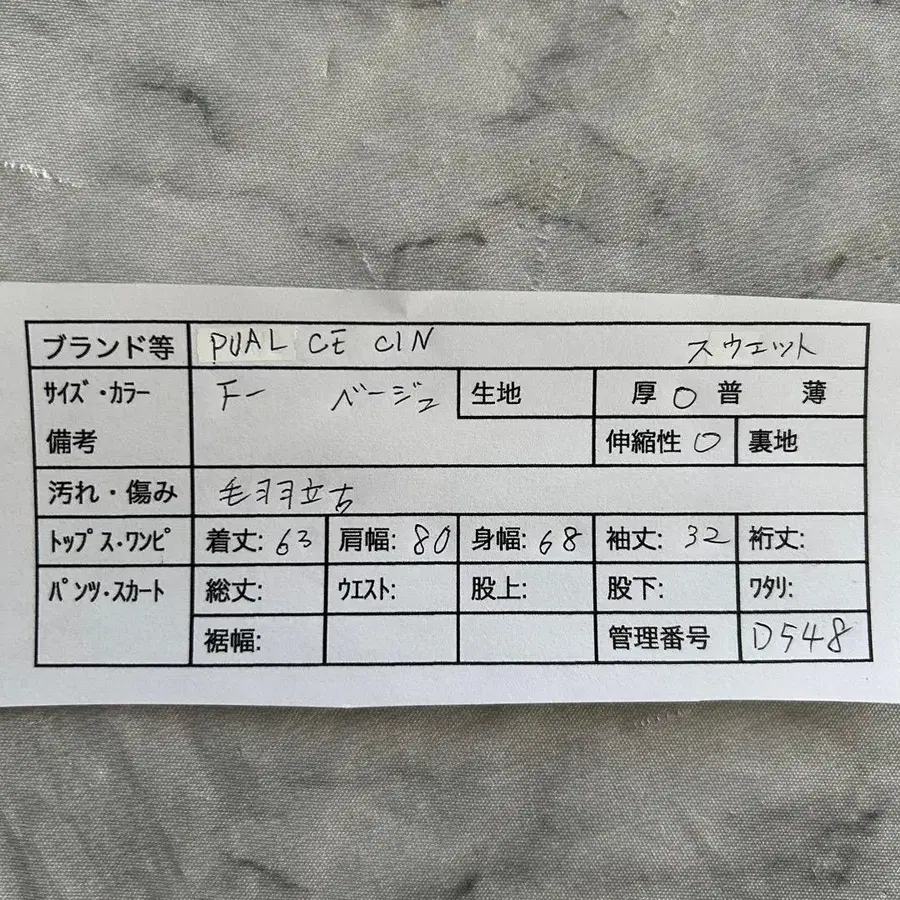 ブランド等 PUAL CE CIN スウェット
サイズ・カラー F ベージュ 生地 厚 〇 普 薄
備考 伸縮性 〇 裏地
汚れ・傷み 毛羽立ち
トップス・ワンピ 着丈: 63 肩幅: 80 身幅: 68 袖丈: 32 裄丈:
パンツ・スカート 総丈: ウエスト: 股上: 股下: ワタリ:
裾幅: 管理番号 D548